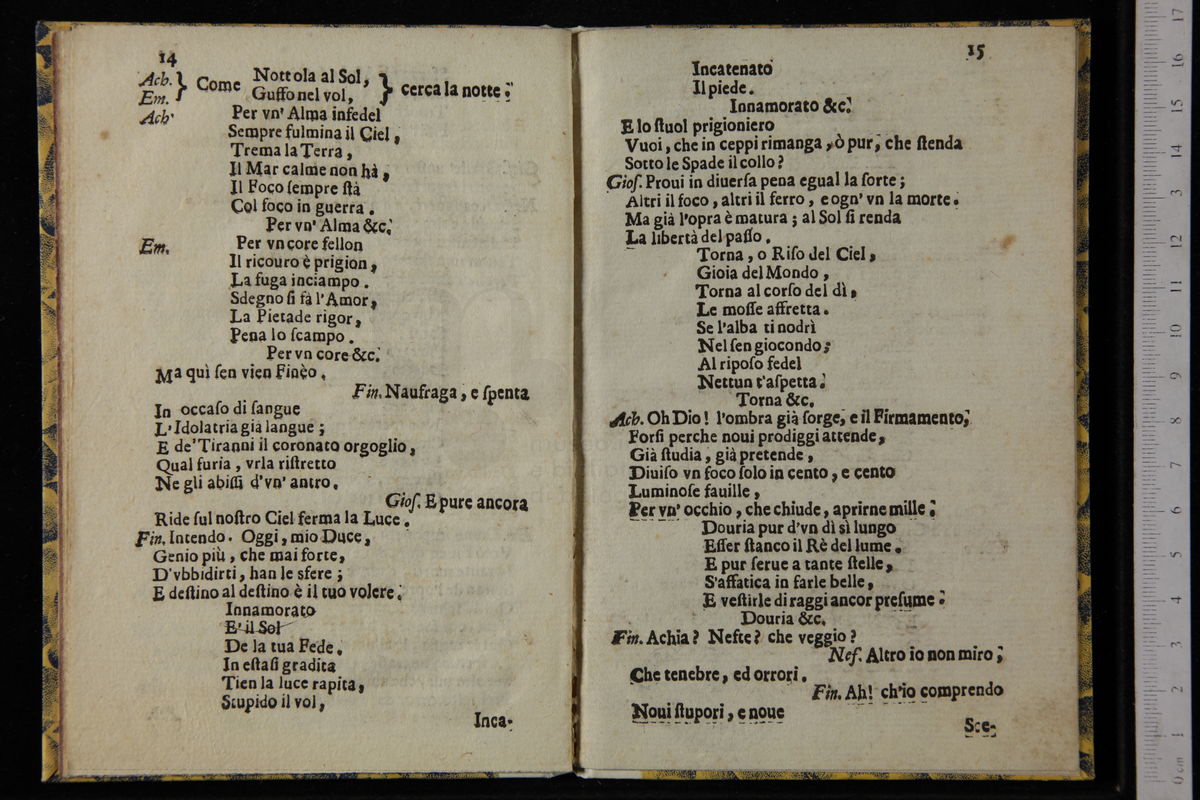 14
Ach. } Come Nottola al Sol, } cerca la notte.
Em. } Guffo nel vol,
Ach. Per vn' Alma infedel
Sempre fulmina il Ciel,
Trema la Terra,
Il Mar calme non hà,
Il Foco ſempre ſtà
Col foco in guerra.
Per vn' Alma &c.
Em. Per vn core fellon
Il ricouro è prigion,
La fuga inciampo.
Sdegno ſi fà l'Amor,
La Pietade rigor,
Pena lo ſcampo.
Per vn core &c.
Ma quì ſen vien Fineo.
Fin. Naufraga, e ſpenta
In occaſo di ſangue
L'Idolatria già langue;
E de' Tiranni il coronato orgoglio,
Qual furia, vrla riſtretto
Ne gli abiſſi d'vn' antro.
Gioſ. E pure ancora
Ride ſul noſtro Ciel ferma la Luce.
Fin. Intendo. Oggi, mio Duce,
Genio più, che mai forte,
D'vbbidirti, han le sfere;
E deſtino al deſtino è il tuo volere.
Innamorato
E' il Sol
De la tua Fede.
In eſtaſi gradita
Tien la luce rapita,
Stupido il vol,
Inca-
15
Incatenato
Il piede.
Innamorato &c.
E lo ſtuol prigioniero
Vuoi, che in ceppi rimanga, ò pur, che ſtenda
Sotto le Spade il collo?
Gioſ. Proui in diuerſa pena egual la ſorte;
Altri il foco, altri il ferro, e ogn' vn la morte.
Ma già l'opra è matura; al Sol ſi renda
La libertà del paſſo.
Torna, o Riſo del Ciel,
Gioia del Mondo,
Torna al corſo del dì,
Le moſſe affretta.
Se l'alba ti nodrì
Nel ſen giocondo;
Al ripoſo fedel
Nettun t'aſpetta.
Torna &c.
Ach. Oh Dio! l'ombra già ſorge, e il Firmamento,
Forſi perche noui prodiggi attende,
Già ſtudia, già pretende,
Diuiſo vn foco ſolo in cento, e cento
Luminoſe fauille,
Per vn' occhio, che chiude, aprirne mille.
Douria pur d'vn dì sì lungo
Eſſer ſtanco il Rè del lume.
E pur ſerue a tante ſtelle,
S'affatica in farle belle,
E veſtirle di raggi ancor preſume.
Douria &c.
Fin. Achia? Nefte? che veggio?
Nef. Altro io non miro,
Che tenebre, ed orrori.
Fin. Ah! ch'io comprendo
Noui ſtupori, e noue
Sce-